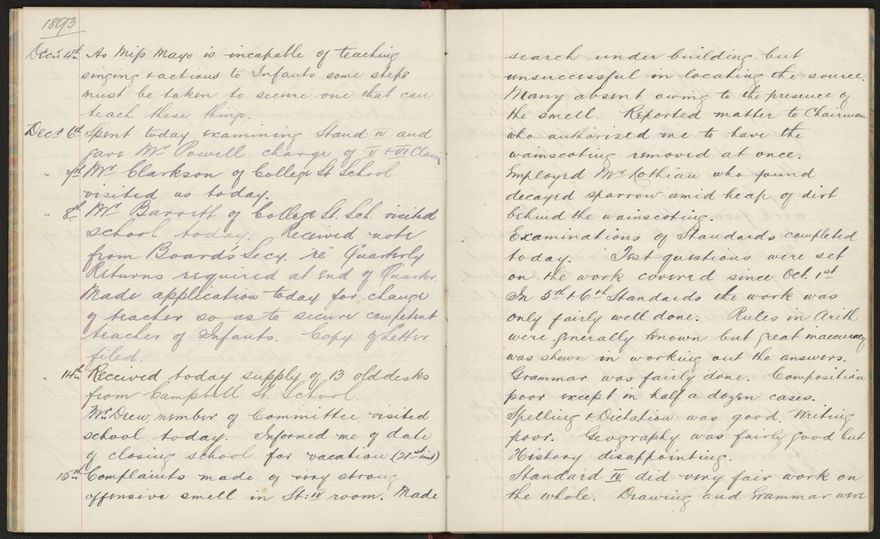 1893
Decr 4th As Miss Mayo is incapable of teaching
singing & actions to Infants some steps
must be taken to secure one that can
teach these things.
Decr 6th Spent today examining Stand: IV and
gave Mr Powell charge of V & VI Class
" 7th Mr Clarkson of College St School
visited us today.
" 8th Mr Barrett of College St. Sch. visited
school today. Received note
from Board's Secy. "re" Quarterly
Returns required at end of Quarter.
Made application today for change
of teacher so as to secure competent
teacher of Infants. Copy of Letter
filed.
" 14th Received today supply of 13 old desks
from Campbell St. School.
Mr Drew, member of Committee visited
school today. Informed me of date
of closing school for vacation (21st inst)
15th Complaints made of very strong
offensive smell in St: IV room. Made
search under building but
unsuccessful in locating the source.
Many absent owing to the presence of
the smell. Reported matter to Chairman
who authorised me to have the
wainscoting removed at once.
Employed Mr who found
decayed sparrow amid heap of dirt
behind the wainscoting.
Examinations of Standards completed
today. Test questions were set
on the work covered since Oct. 1st
In 5th & 6th Standards the work was
only fairly well done. Rules in Arith
were generally known but great inaccuracy
was shewn in working out the answers.
Grammar was fairly done. Composition
poor except in half a dozen cases.
Spelling & Dictation was good. Writing
poor. Geography was fairly good but
History disappointing.
Standard IV did very fair work on
the whole. Drawing and Grammar were